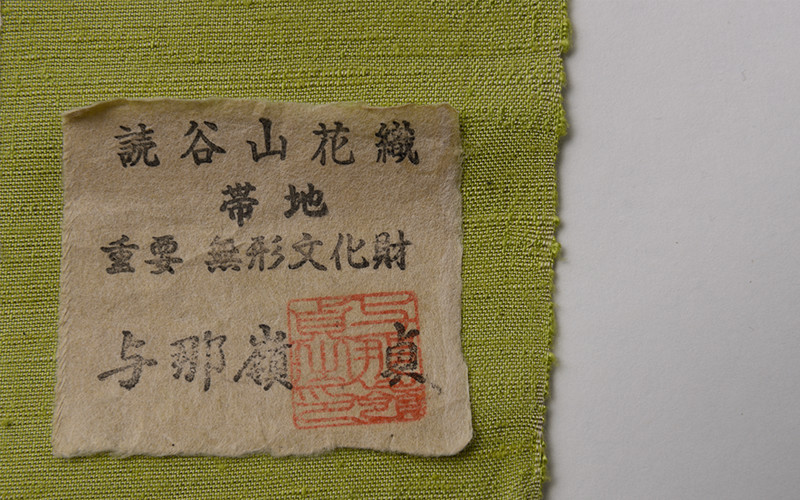 読谷山花織
帯地
重要 無形文化財
与那嶺 貞